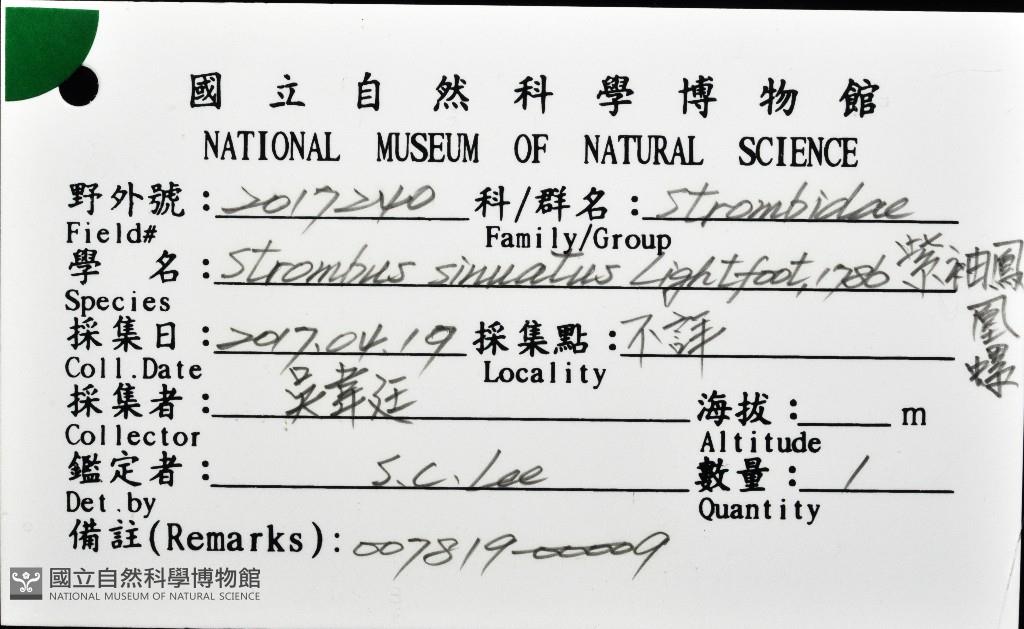 國立自然科學博物館
NATIONAL MUSEUM OF NATURAL SCIENCE
野外號：2017240 科/群名：Strombidae
Field# Family/Group
學 名：Strombus sinuatus Lightfoot, 1786 紫袖鳳凰螺
Species
採集日：2017.04.19 採集點：不詳
Coll.Date Locality
採集者：吳韋廷 海拔： m
Collector Altitude
鑑定者：S.C. Lee 數量：1
Det.by Quantity
備註(Remarks):007819-00009
國立自然科學博物館
NATIONAL MUSEUM OF NATURAL SCIENCE